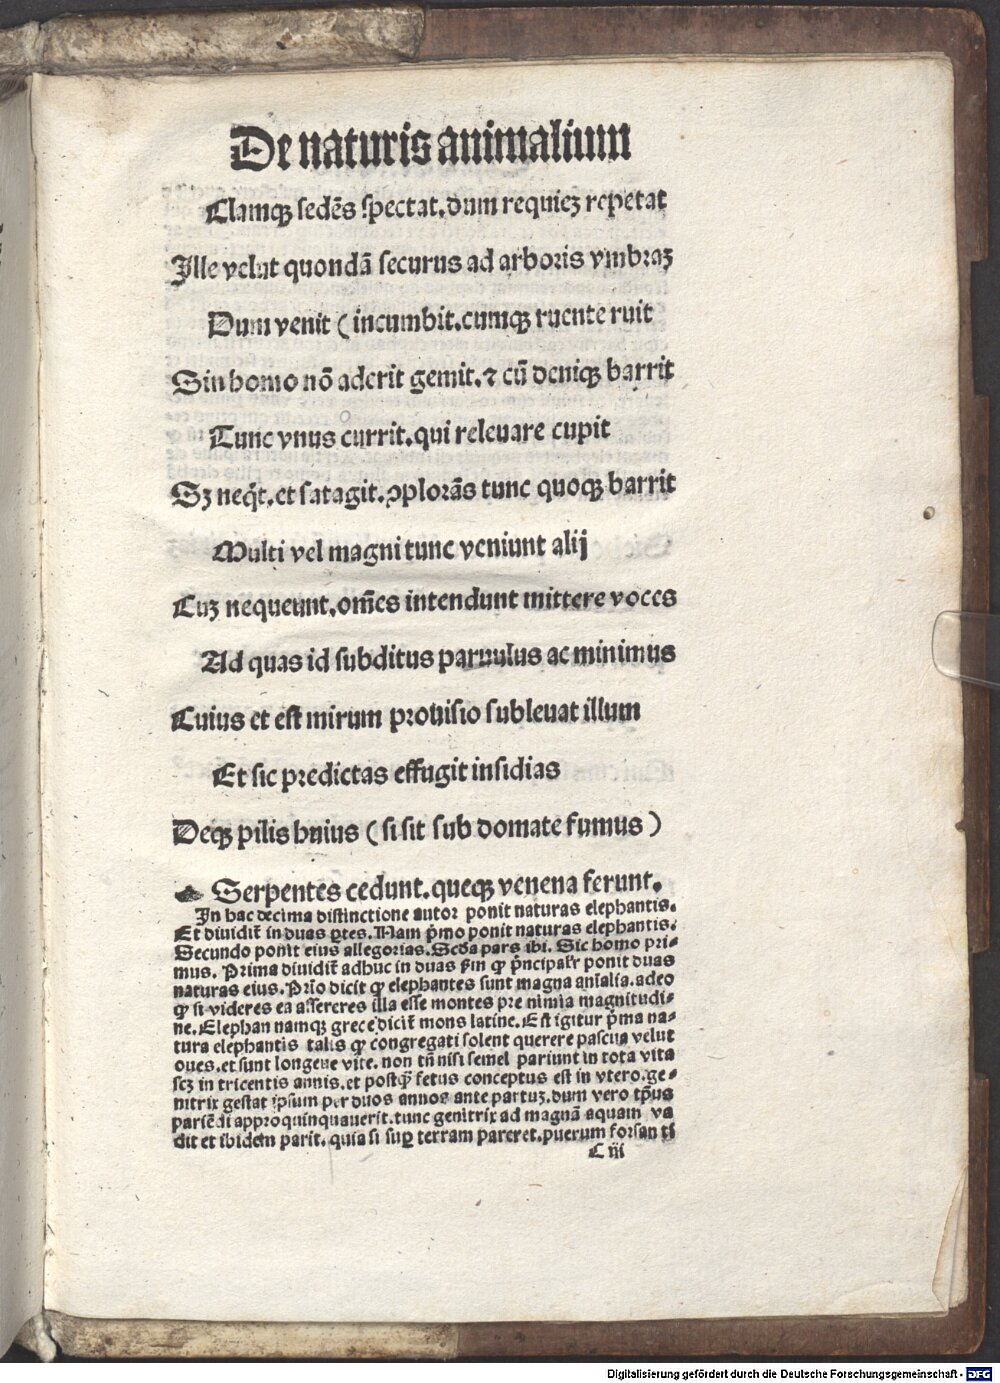 De naturis animalium
Clamqꝫ sedẽs spectat. dum requieꝫ repetat
Ille velut quondã securus ad arboris vmbraꝫ
Dum venit (incumbit. cumqꝫ ruente ruit
Sin homo nõ aderit gemit. ⁊ cũ deniqꝫ barrit
Tunc vnus currit. qui relevare cupit
Sꝫ neq̃t. et satagit. ꝓplorãs tunc quoqꝫ barrit
Multi vel magni tunc veniunt alij
Cuꝫ nequeunt. om̃es intendunt mittere voces
Ad quas id subditus paruulus ac minimus
Cuius et est mirum provisio sublevat illum
Et sic predictas effugit insidias
Deqꝫ pilis huius (si sit sub domate fumus)
Serpentes cedunt. queqꝫ venena ferunt.
In hac decima distinctione autor ponit naturas elephantis.
Et diuidit᷑ in duas ꝑtes. Nam p̃mo ponit naturas elephantis.
Secundo ponit eius allegorias. Scd̃a pars ibi. Sic homo pri⸗
mus. Prima diuidit᷑ adhuc in duas ẜm ꝙ p̃ncipalr̃ ponit duas
naturas eius. Prĩo dicit ꝙ elephantes sunt magna aĩalia. adeo
ꝙ si videres ea assereres illa esse montes pre nimia magnitudi⸗
ne. Elephan namqꝫ grece dicit᷑ mons latine. Est igitur p̃ma na⸗
tura elephantis talis ꝙ congregati solent querere pascua velut
oues. et sunt longeue vite. non tñ nisi semel pariunt in tota vita
scꝫ in tricentis annis. et postꝙ̃ fetus conceptus est in vtero. ge⸗
nitrix gestat ipsum per duos annos ante partuꝫ. dum vero tp̃us
pariẽdi appropinquauerit. tunc genitrix ad magnã aquam va
dit et ibidem parit. quia si suꝑ terram pareret. puerum forsan ti
C iij
Digitalisierung gefördert durch die Deutsche Forschungsgemeinschaft - DFG